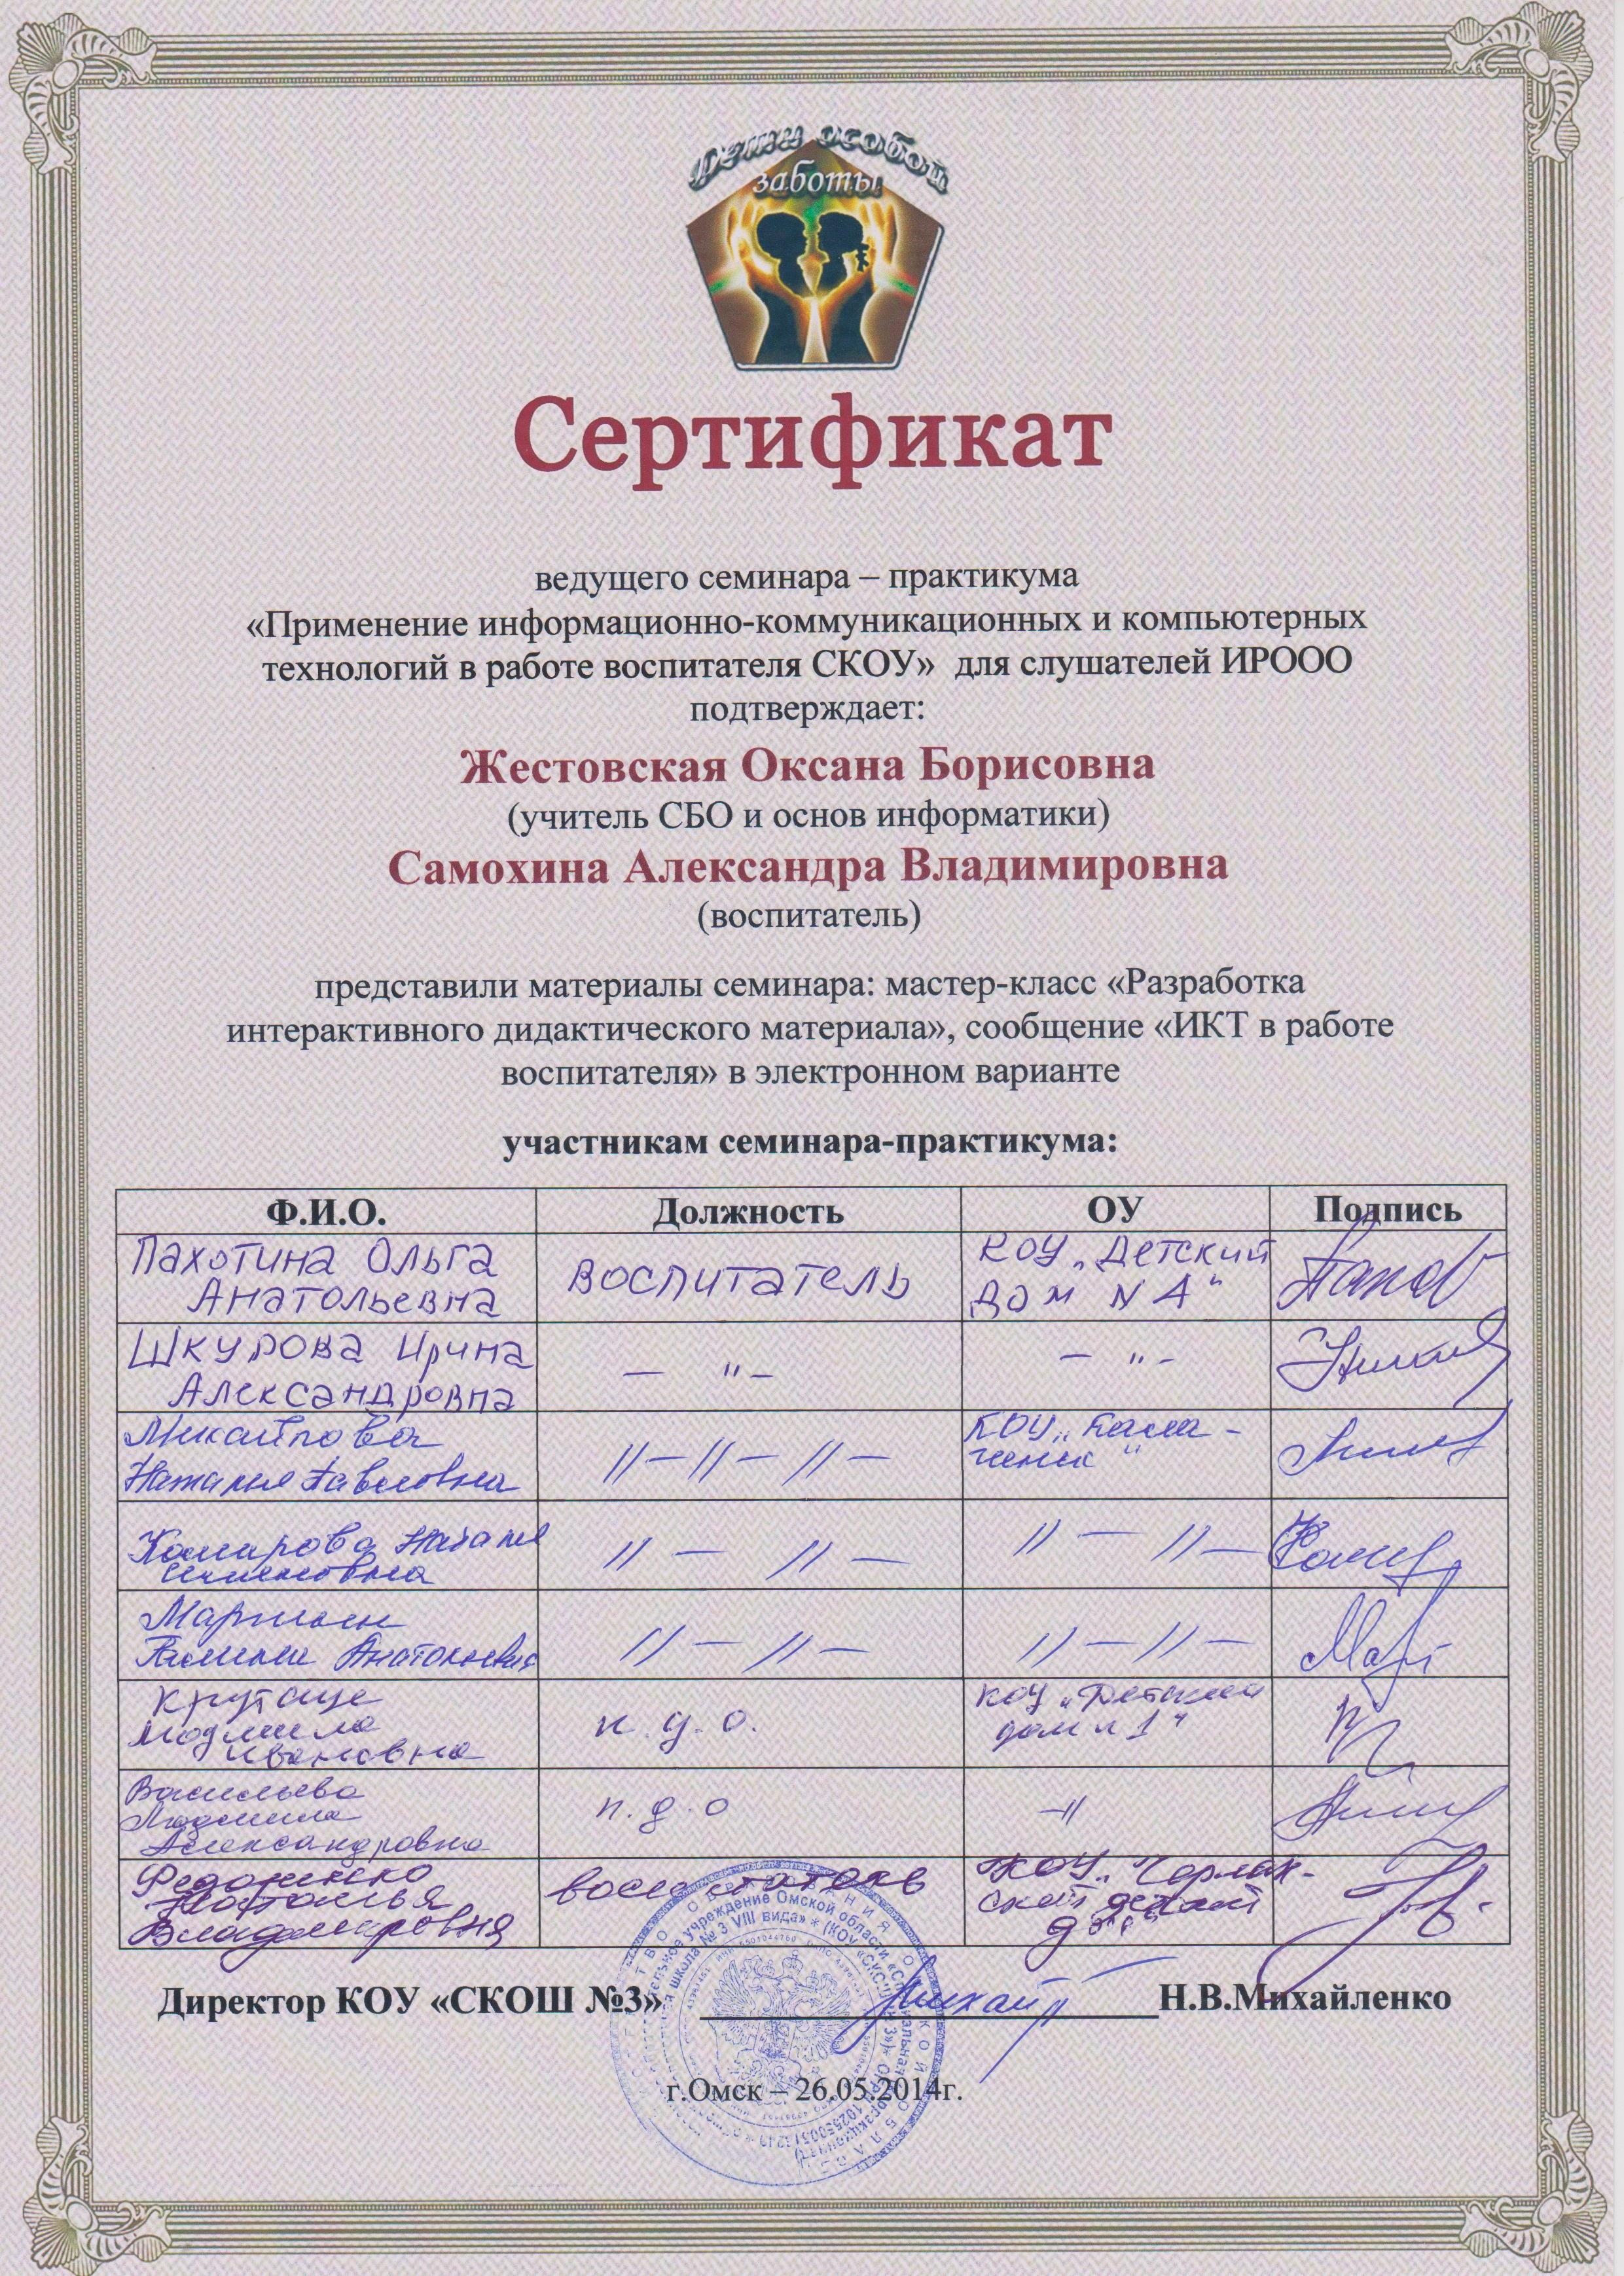 Детям особой
заботы
Сертификат
ведущего семинара – практикума
«Применение информационно-коммуникационных и компьютерных
технологий в работе воспитателя СКОУ» для слушателей ИРООО
подтверждает:
Жестовская Оксана Борисовна
(учитель СБО и основ информатики)
Самохина Александра Владимировна
(воспитатель)
представили материалы семинара: мастер-класс «Разработка
интерактивного дидактического материала», сообщение «ИКТ в работе
воспитателя» в электронном варианте
участникам семинара-практикума:
Ф.И.О. Должность ОУ Подпись
Пахотина Ольга
Анатольевна
воспитатель
КОУ „Детский
дом N
Шкурова Ирина
Александровна
— " –
— " –
Наталья Павловна
//—//—//—
КОУ
// — // —
// — // —
Анатольевна
// — // —
// — // —
Людмила
Ивановна
п.д.о.
КОУ „Детский
дом 1"
Васильева
Людмила
Александровна
п.д.о
–//
Наталья
Владимировна
КОУ
Директор КОУ «СКОШ №3» Н.В.Михайленко
г.Омск – 26.05.2014г.